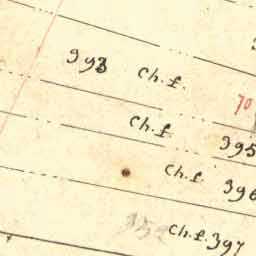 393 ch.f.
70
ch.f 395
ch.f 396
ch.f. 397